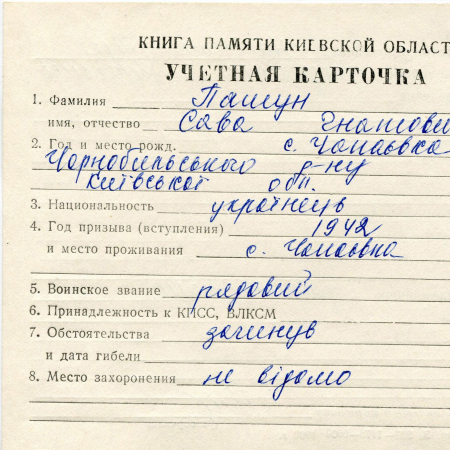 КНИГА ПАМЯТИ КИЕВСКОЙ ОБЛАСТ
УЧЕТНАЯ КАРТОЧКА
1. Фамилия Пашун
имя, отчество Сава Гнатови
2. Год и место рожд. с. Чапаєвка
Чорнобильського р-ну
Київської обл.
3. Национальность українець
4. Год призыва (вступления) 1942
и место проживания с. Чапаєвка
5. Воинское звание рядовий
6. Принадлежность к КПСС, ВЛКСМ
7. Обстоятельства загинув
и дата гибели
8. Место захоронения не відомо